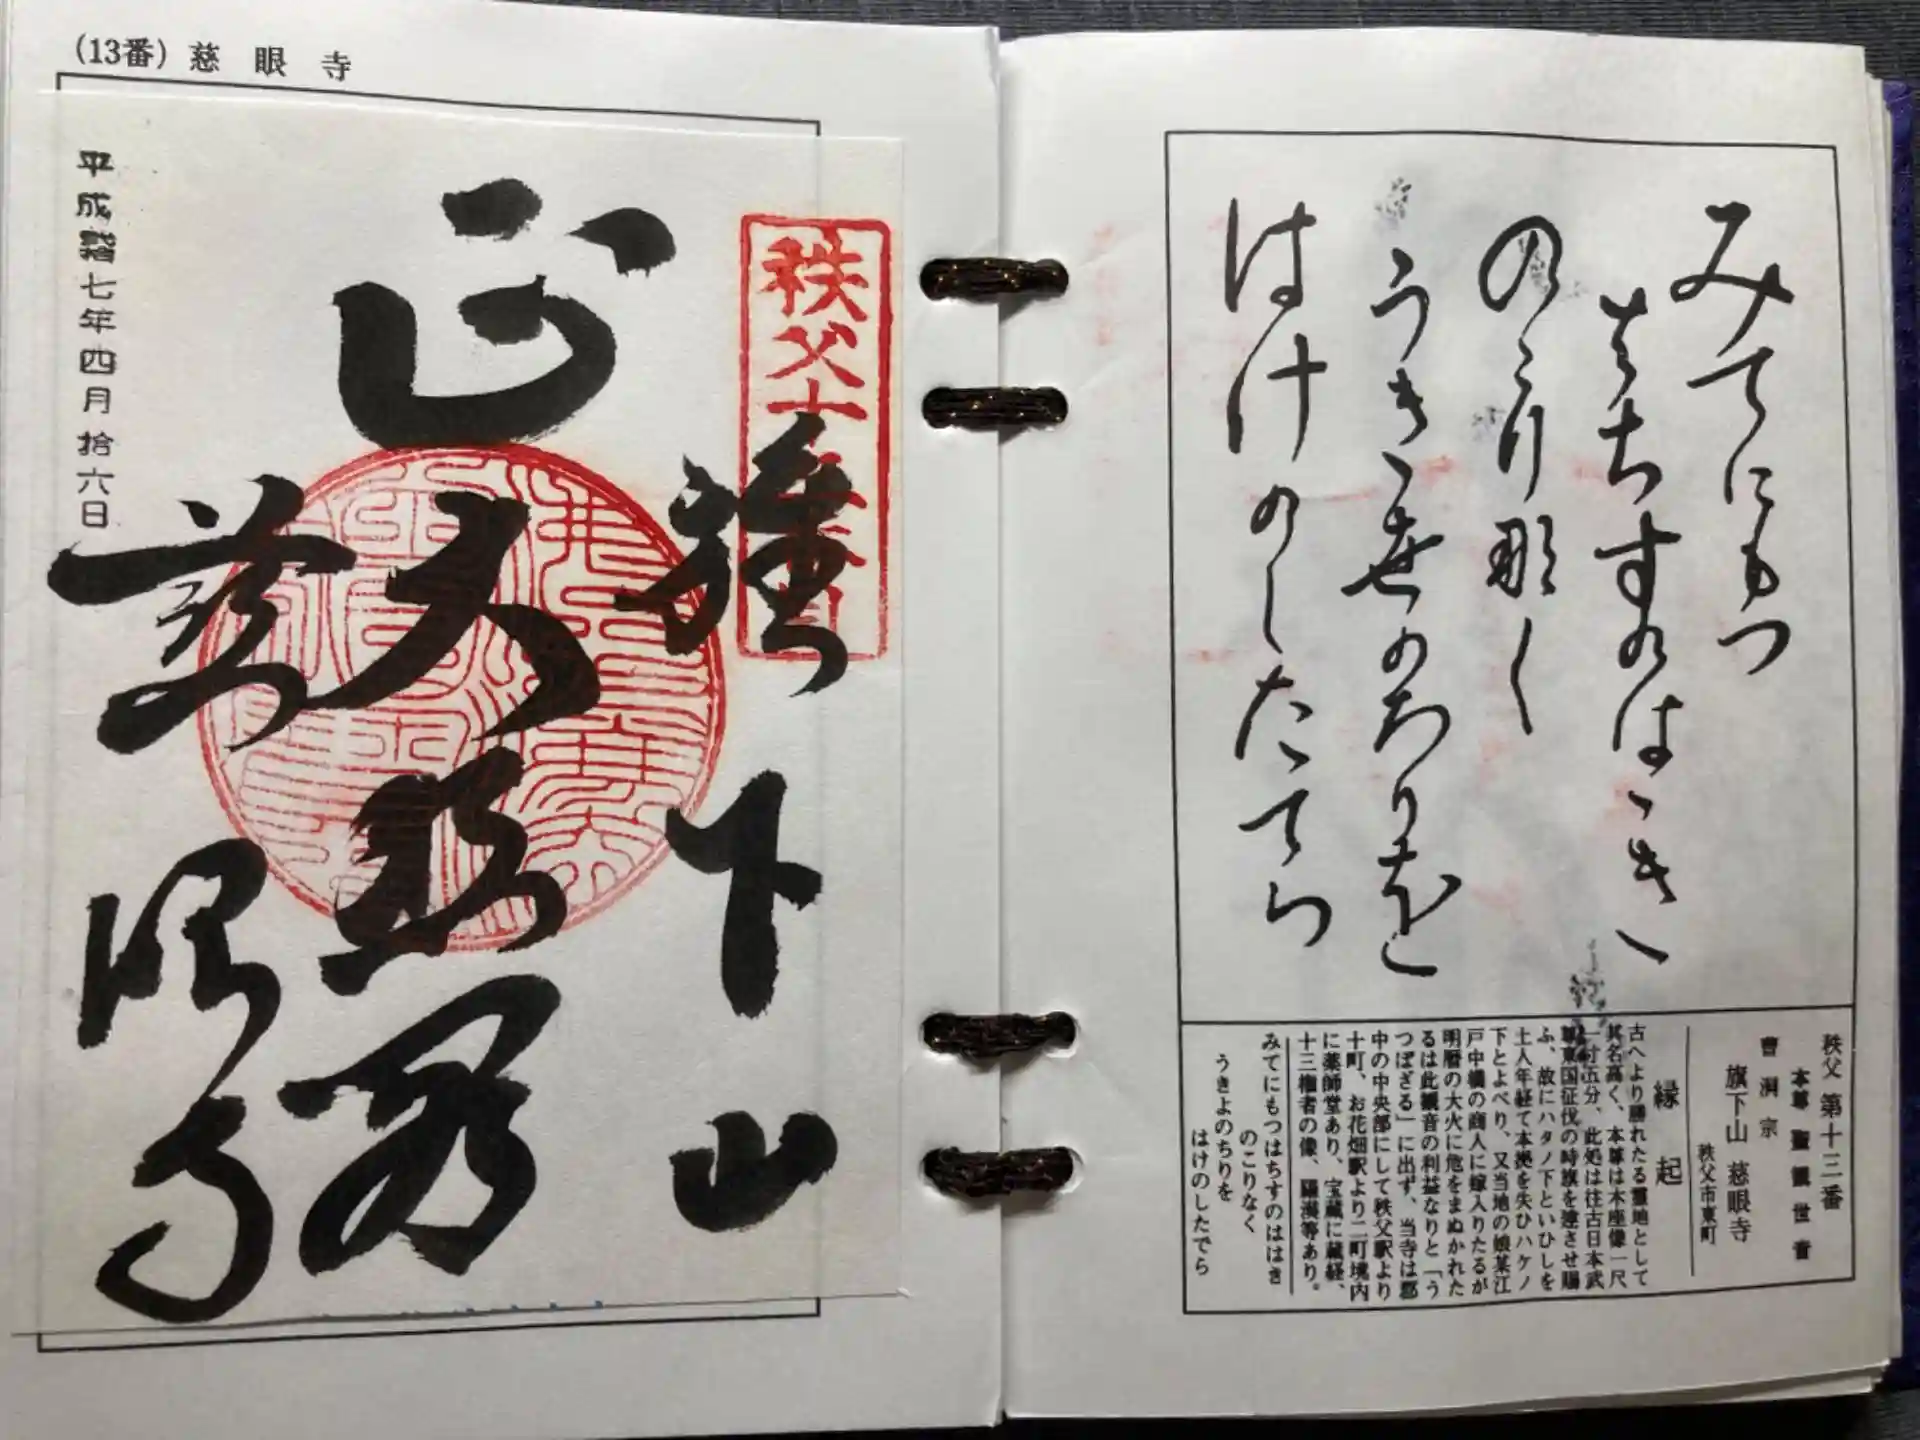 (13番) 慈眼寺
平成貳拾七年四月拾六日
秩父十三番
旗下山
大悲殿
慈眼寺
みてにもつ
はちすのはゝきゝ
のこり那く
うきゝ世のちりを
はけのしたてら
秩父 第十三番
本尊 聖観世音
曹洞宗
旗下山 慈眼寺
秩父市東町
縁起
古へより勝れたる霊地として
其名高く、本尊は木座像一尺
一寸五分、此処は往古日本武
尊東国征伐の時旗を建させ賜
ふ、故にハタノ下といひしを
土人年経て本拠を失ひハケノ
下とよべり、又当地の娘某江
戸中橋の商人に嫁入りたるが
明暦の大火に危をまぬかれた
るは此観音の利益なりと「う
つぼざる」に出ず、当寺は郡
中の中央部にして秩父駅より
十町、お花畑駅より二町境内
に薬師堂あり、宝蔵に蔵経、
十三権者の像、羅漢等あり。
みてにもつはちすのははき
のこりなく
うきよのちりを
はけのしたでら